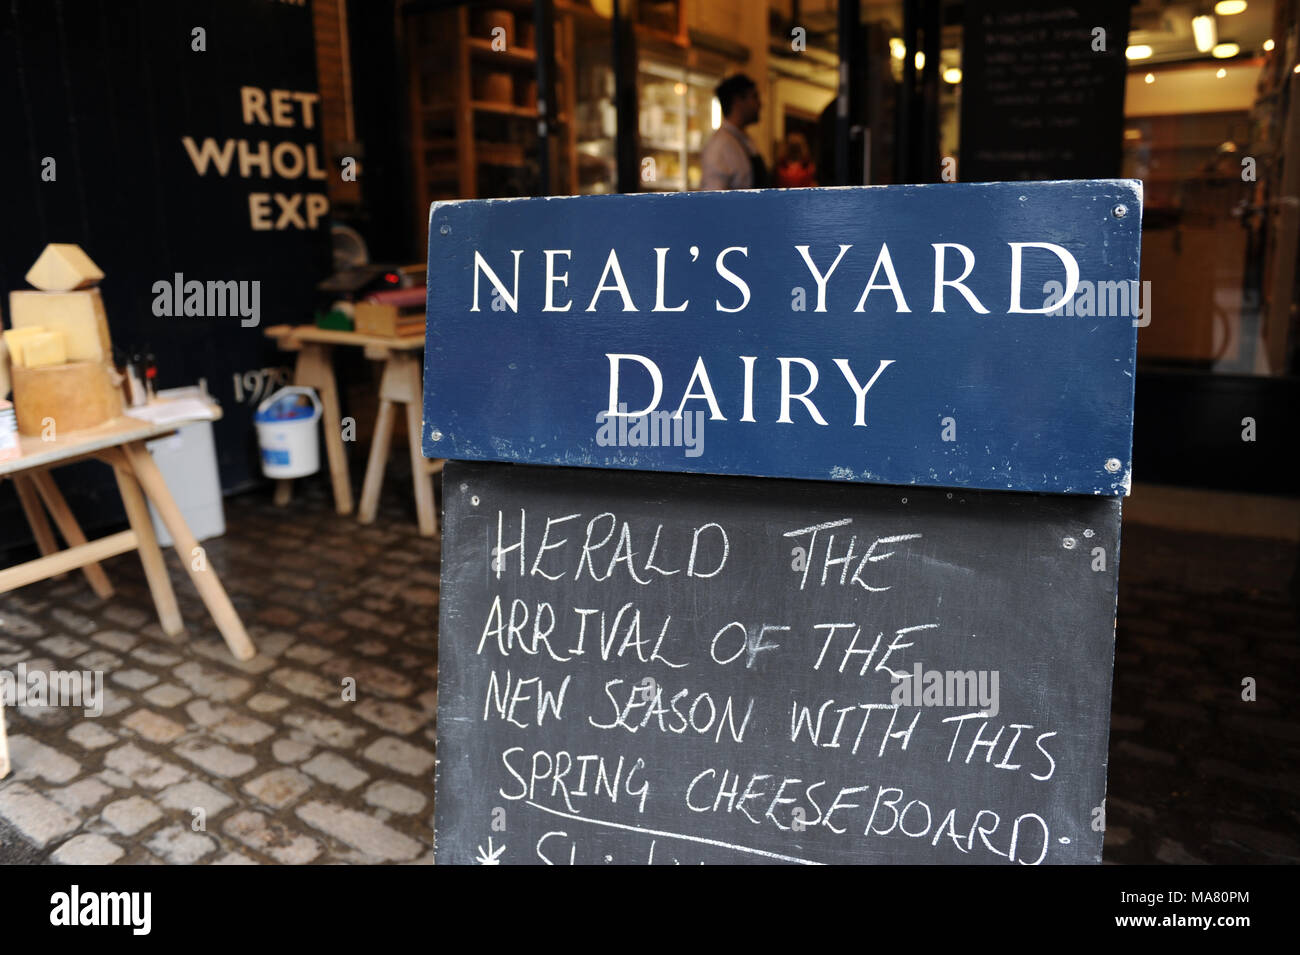 RET
WHOL
EXP
1979
NEAL'S YARD
DAIRY
HERALD THE
ARRIVAL OF THE
NEW SEASON WITH THIS
SPRING CHEESEBOARD
*
alamy stock photo
MA80PM
www.alamy.com